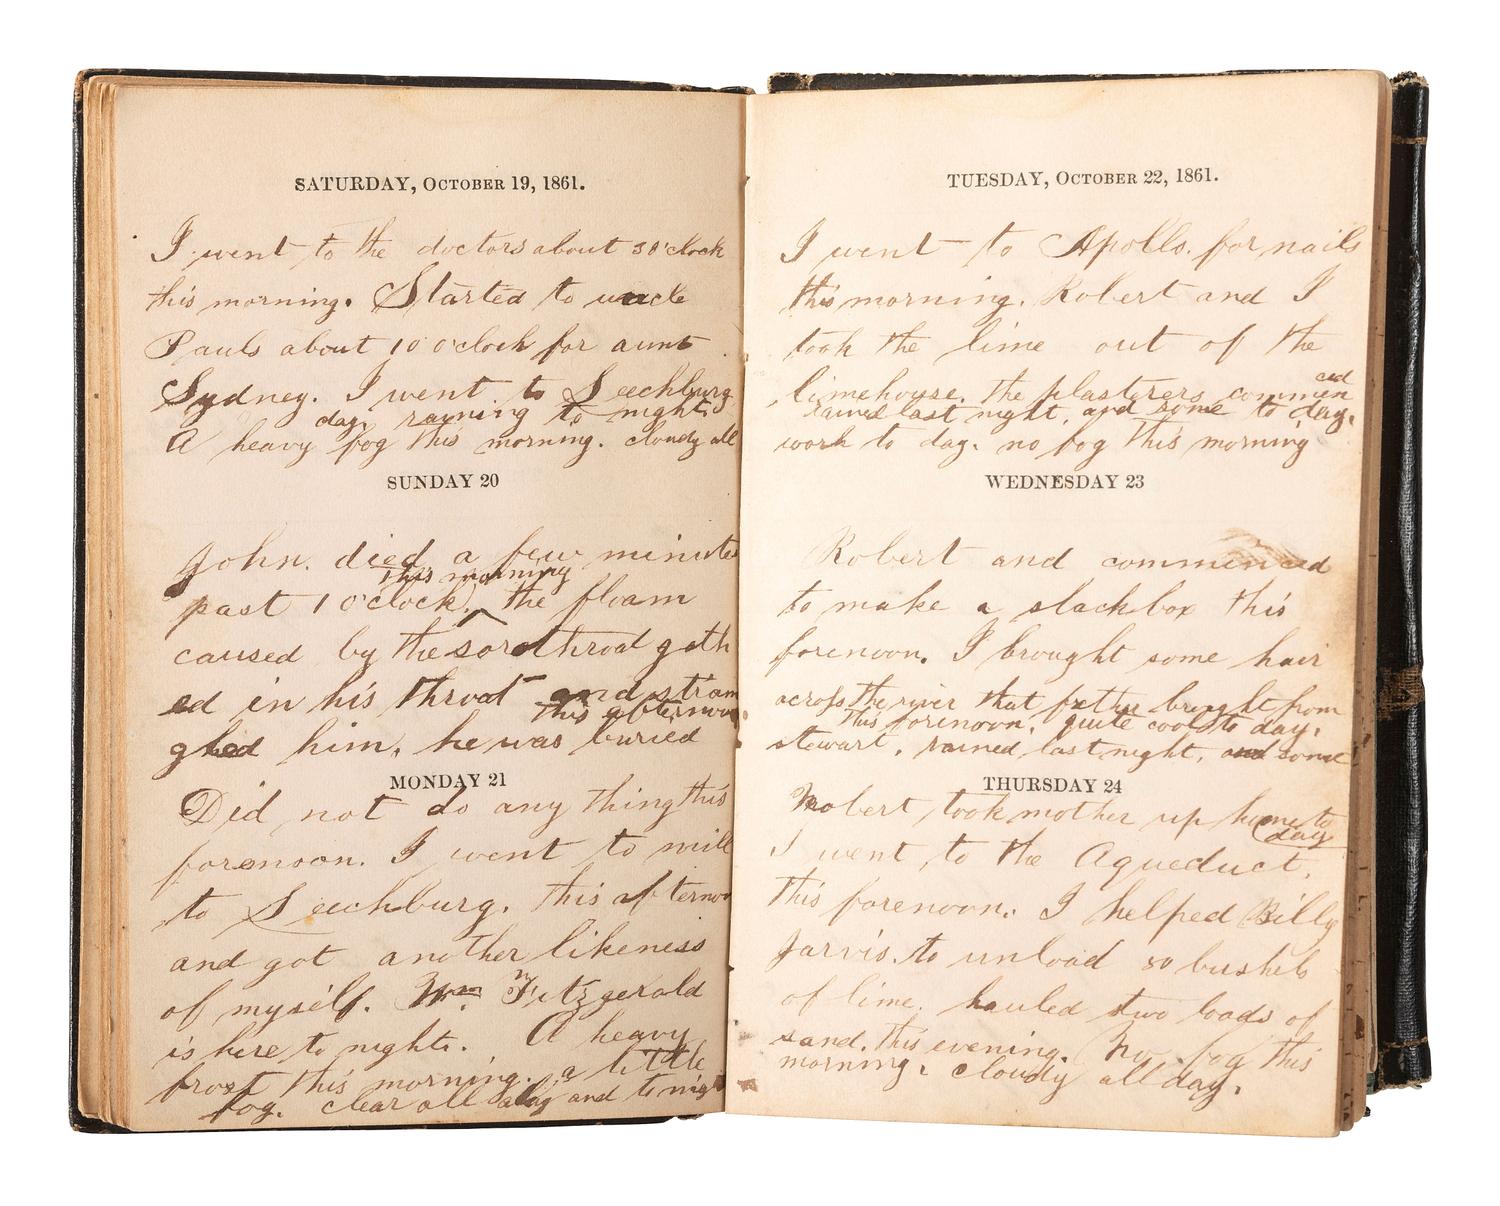 SATURDAY, OCTOBER 19, 1861.
I went to the doctors about 3 o'clock
this morning. Started to uncle
Pauls about 10 o'clock for aunt
Sydney. I went to Leechburg
day, raining to night.
A heavy fog this morning. cloudy all
SUNDAY 20
John. died a few minutes
this morning
past 1 o'clock, the floam
caused by the sore throat gath
ed in his throat and stran
this afternoon
gled him, he was buried
MONDAY 21
Did not do any thing this
forenoon. I went to mill
to Leechburg. this afternoo
and got another likeness
of myself. Wm Fitzgerald
is here to night. A heavy
frost this morning. a little
fog. clear all day and to night
TUESDAY, OCTOBER 22, 1861.
I went to Apollo. for nails
this morning. Robert and I
took the lime out of the
ced
limehouse. the plasterers commen
rained last night, and some to day.
work to day. no fog this morning
WEDNESDAY 23
Robert and commenced
to make a slackbox this
forenoon. I brought some hair
across the river that father brought from
this forenoon. quite cool to day.
stewart, rained last night, and some
THURSDAY 24
Robert took mother up home to
day
I went to the Aqueduct.
this forenoon. I helped Billy
Jarvis. to unload 50 bushels
of lime. hauled two loads of
sand. this evening. No fog this
morning, cloudy all day.